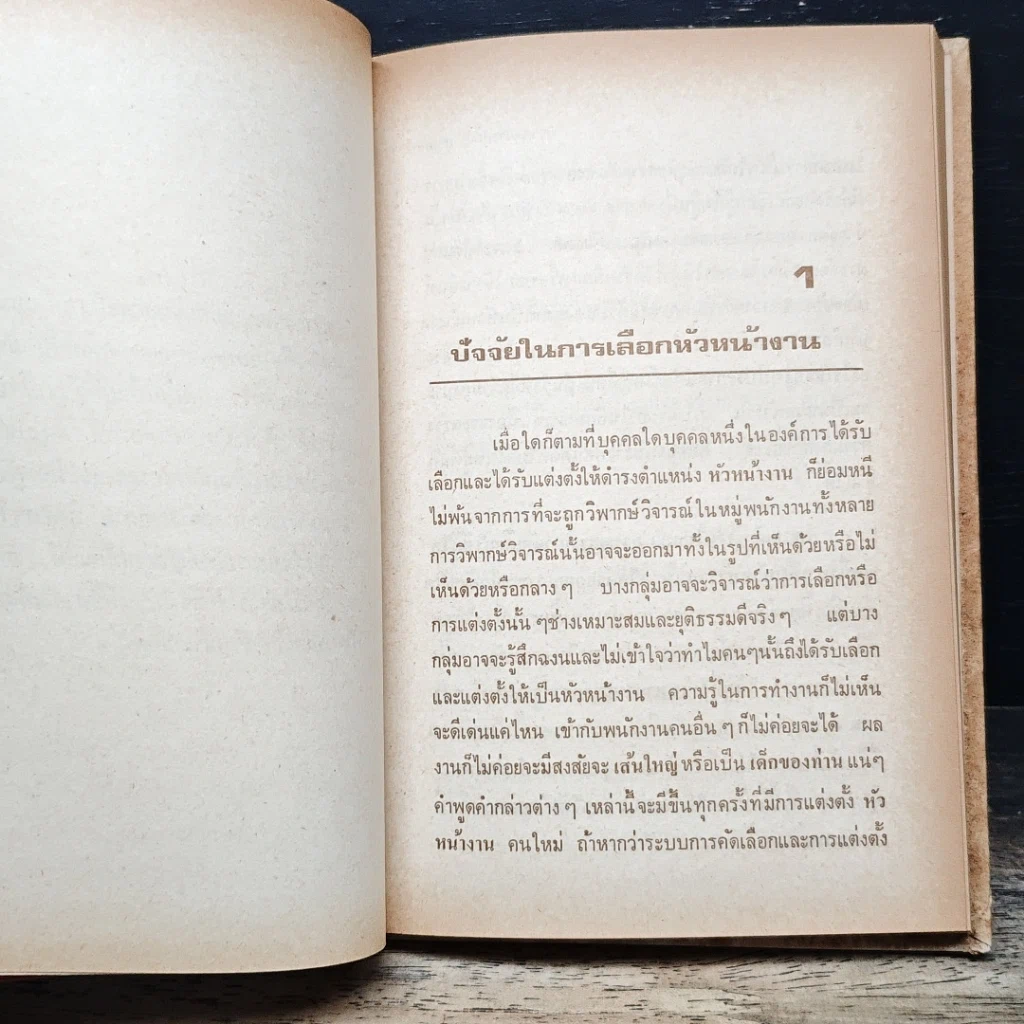 1
ปัจจัยในการเลือกหัวหน้างาน
เมื่อใดก็ตามที่บุคคลใดบุคคลหนึ่งในองค์การได้รับ
เลือกและได้รับแต่งตั้งให้ดำรงตำแหน่ง หัวหน้างาน ก็ย่อมหนี
ไม่พ้นจากการที่จะถูกวิพากษ์วิจารณ์ในหมู่พนักงานทั้งหลาย
การวิพากษ์วิจารณ์นั้นอาจจะออกมาทั้งในรูปที่เห็นด้วยหรือไม่
เห็นด้วยหรือกลาง ๆ บางกลุ่มอาจจะวิจารณ์ว่าการเลือกหรือ
การแต่งตั้งนั้น ๆช่างเหมาะสมและยุติธรรมดีจริง ๆ แต่บาง
กลุ่มอาจจะรู้สึกฉงนและไม่เข้าใจว่าทำไมคนๆนั้นถึงได้รับเลือก
และแต่งตั้งให้เป็นหัวหน้างาน ความรู้ในการทำงานก็ไม่เห็น
จะดีเด่นแค่ไหน เข้ากับพนักงานคนอื่น ๆ ก็ไม่ค่อยจะได้ ผล
งานก็ไม่ค่อยจะมีสงสัยจะ เส้นใหญ่ หรือเป็น เด็กของท่าน แน่ๆ
คำพูดคำกล่าวต่าง ๆ เหล่านี้จะมีขึ้นทุกครั้งที่มีการแต่งตั้ง หัว
หน้างาน คนใหม่ ถ้าหากว่าระบบการคัดเลือกและการแต่งตั้ง